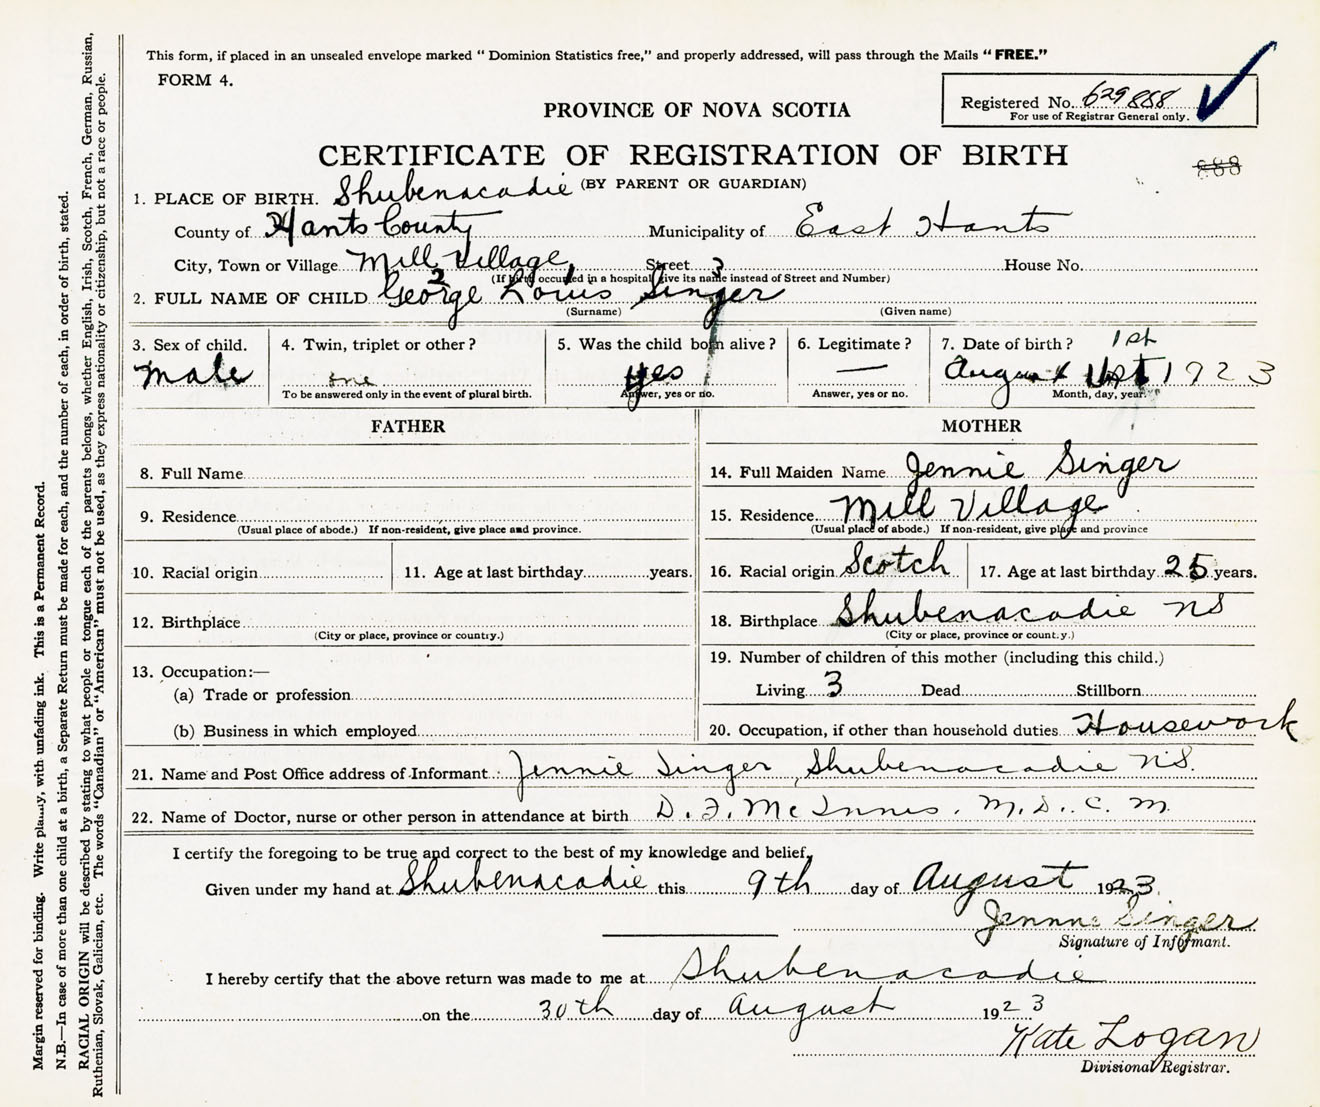 This form, if placed in an unsealed envelope marked “ Dominion Statistics free,” and properly addressed, will pass through the Mails “ FREE.”
FORM 4.
Registered No. 629868
For use of Registrar General only.
PROVINCE OF NOVA SCOTIA
CERTIFICATE OF REGISTRATION OF BIRTH
888
(BY PARENT OR GUARDIAN)
1. PLACE OF BIRTH. Shubenacadie
County of Hants County Municipality of East Hants
City, Town or Village Mill Village Street House No.
(If birth occurred in a hospital give its name instead of Street and Number)
2 1 3
2. FULL NAME OF CHILD George Louis Singer
(Surname) (Given name)
3. Sex of child. male
4. Twin, triplet or other ? one
To be answered only in the event of plural birth.
5. Was the child born alive ? yes
Answer, yes or no.
6. Legitimate ? —
Answer, yes or no.
7. Date of birth ? 1st
August 1st 1923
Month, day, year.
FATHER
8. Full Name
9. Residence
(Usual place of abode.) If non-resident, give place and province.
10. Racial origin 11. Age at last birthday years.
12. Birthplace
(City or place, province or country.)
13. Occupation:—
(a) Trade or profession
(b) Business in which employed
MOTHER
14. Full Maiden Name Jennie Singer
15. Residence Mill Village
(Usual place of abode.) If non-resident, give place and province
16. Racial origin Scotch 17. Age at last birthday 25 years.
18. Birthplace Shubenacadie NS
(City or place, province or country.)
19. Number of children of this mother (including this child.)
Living 3 Dead Stillborn
20. Occupation, if other than household duties Housework
21. Name and Post Office address of Informant : Jennie Singer Shubenacadie N.S.
22. Name of Doctor, nurse or other person in attendance at birth D. F. McInnis. M.D. C. M.
I certify the foregoing to be true and correct to the best of my knowledge and belief,
Given under my hand at Shubenacadie this 9th day of August 1923.
Jennie Singer
Signature of Informant.
I hereby certify that the above return was made to me at Shubenacadie
on the 30th day of August 1923
Kate Logan
Divisional Registrar.
Margin reserved for binding. Write plainly, with unfading ink. This is a Permanent Record.
N.B.—In case of more than one child at a birth, a Separate Return must be made for each, and the number of each, in order of birth, stated.
RACIAL ORIGIN will be described by stating to what people or tongue each of the parents belongs, whether English, Irish, Scotch, French, German, Russian,
Ruthenian, Slovak, Galician, etc. The words “Canadian” or “American” must not be used, as they express nationality or citizenship, but not a race or people.